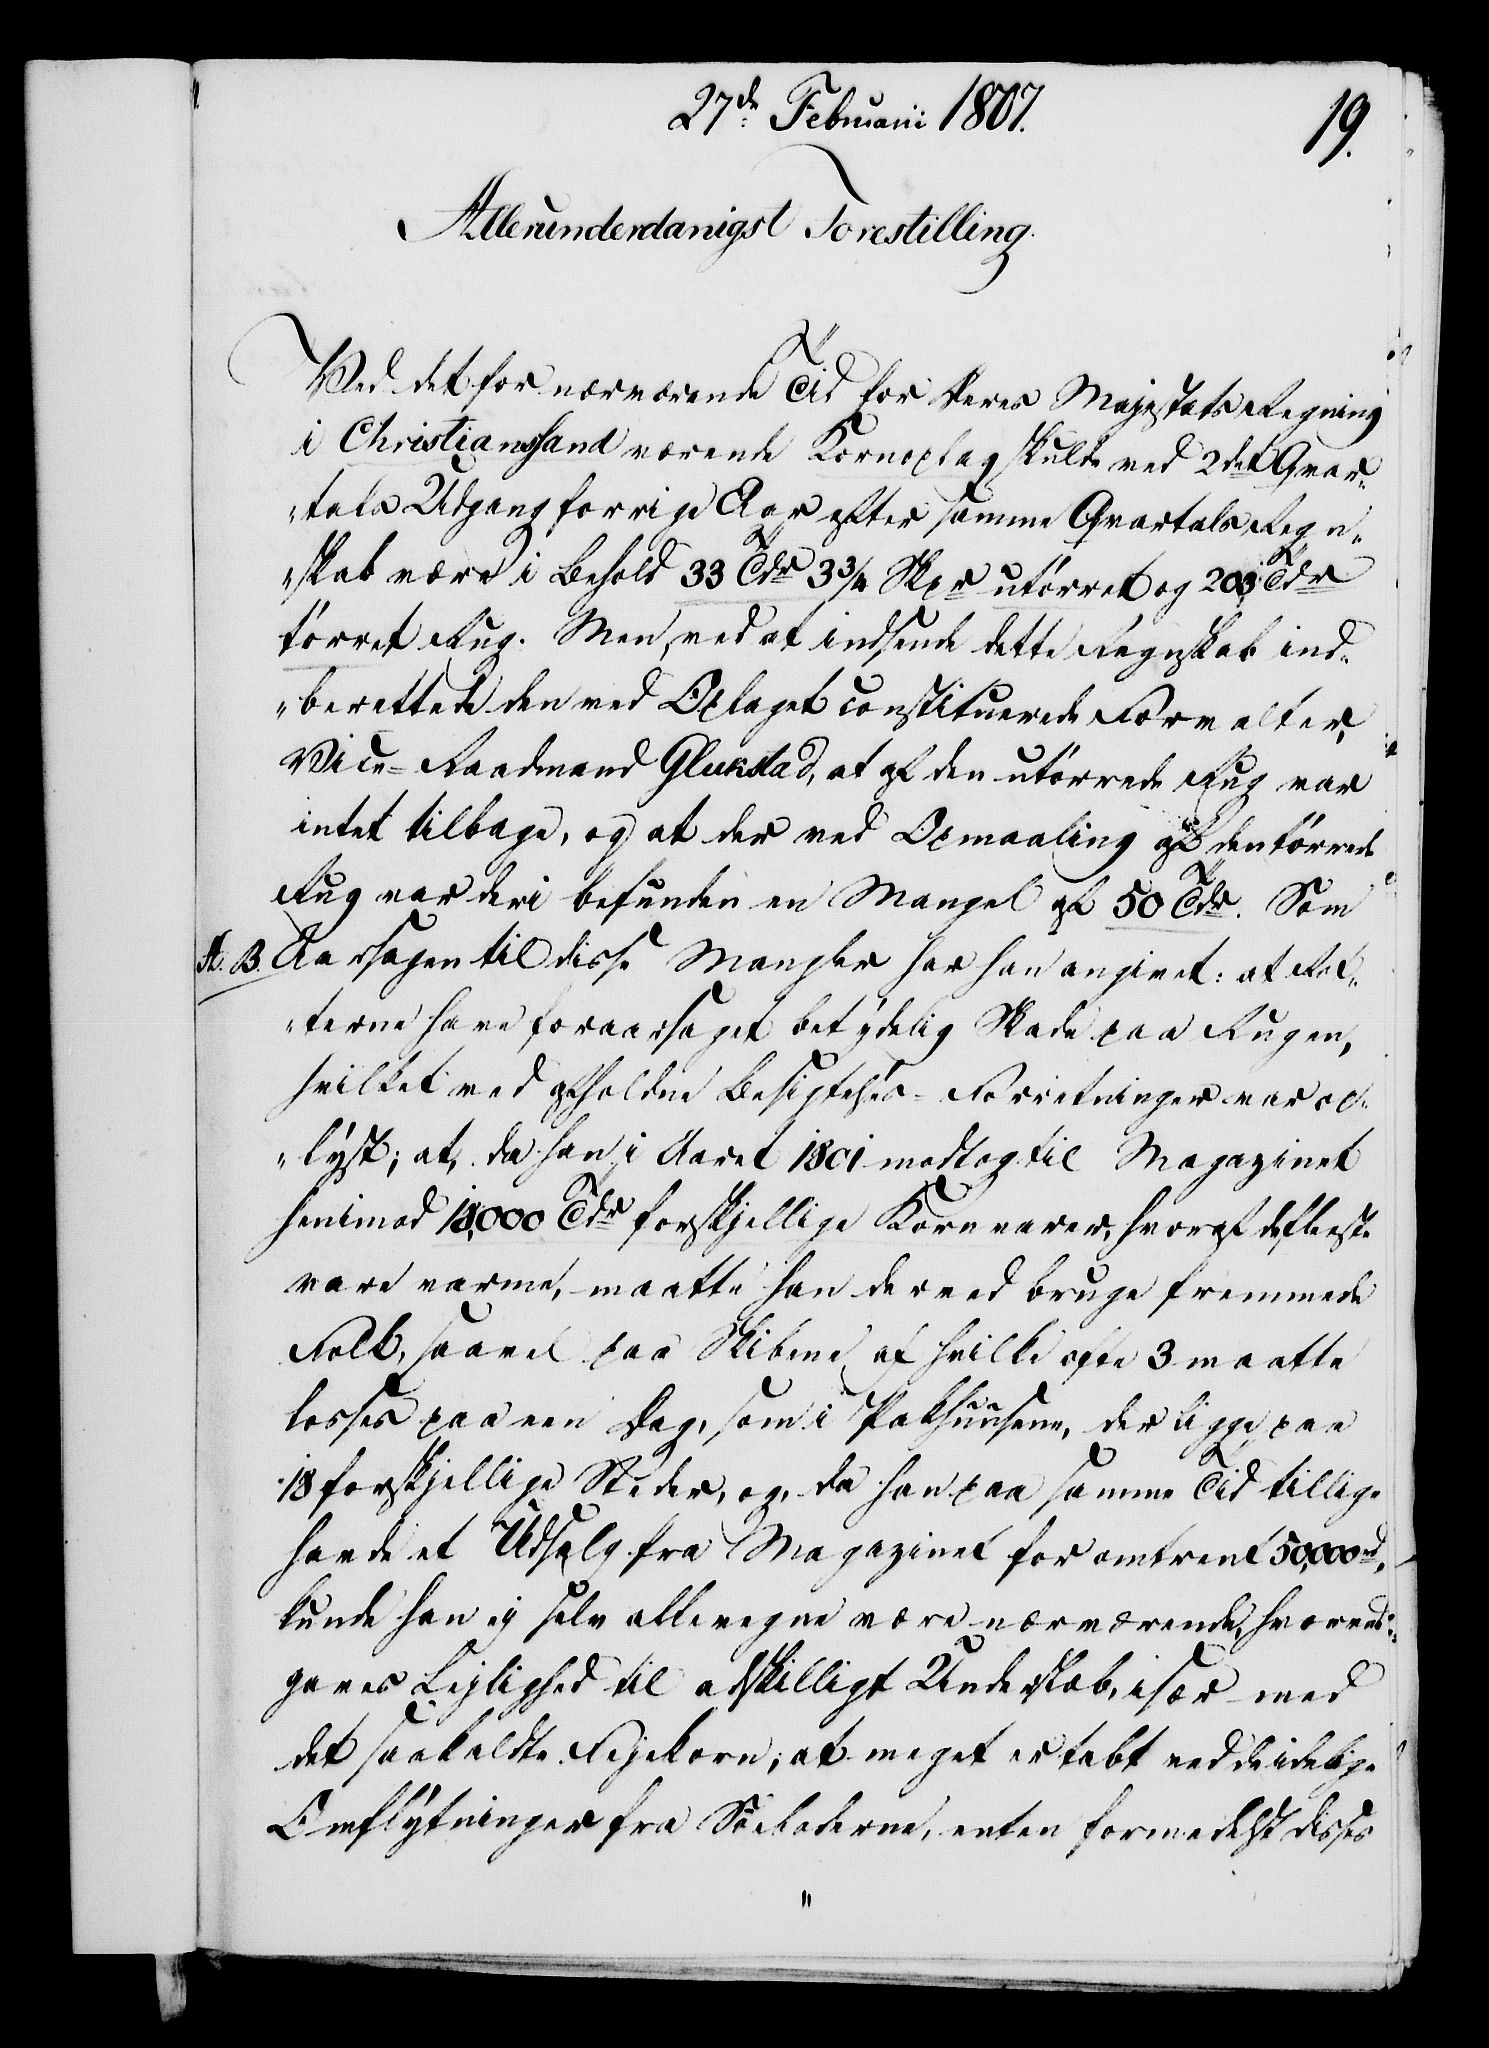 27de Februarii 1807.
19.
Allerunderdanigst Forestilling.
Ved det for nærværende Tid for Deres Majestæts Regning
i Christianssand værende Kornoplag skulde ved 2det Qvar-
"tals Udgang forrige Aar efter samme Qvartals Regn-
"skab være i Behold 33 Tdr 3 3/4 Skpr utørret og 203 Tdr
tørret Rug. Men, ved at indsende dette Regnskab ind-
"berettede den ved Oplaget constituerede Forvalter,
Vice-Raadmand Glukstad, at af den utørrede Rug var
intet tilbage, og at der ved Opmaaling af den tørrede
Rug var deri befunden en Mangel af 50 Tdr. Som
A. B. Aarsagen til disse Mangler har han angivet: at Rot-
"terne have foraarsaget betydelig Skade paa Rugen,
hvilket ved afholdne Besigtelses-Forretninger var op-
"lyst; at, da han i Aaret 1801 modtog til Magazinet
henimod 18,000 Tdr forskjellige Kornvarer, hvoraf de fleeste
vare varme, maatte han derved bruge fremmede
Folk, saavel paa Skibene, af hvilke ofte 3 maatte
losses paa een Dag, som i Pakhuusene, der ligge paa
18 forskjellige Steder, og, da han paa samme Tid tillige
havde et Udsalg fra Magazinet for omtrent 50,000 rd,
kunde han ej selv allevegne være nærværende, hvorved
gaves Lejlighed til adskilligt Underslæb, især med
det saakaldte Fejekorn; at meget er tabt ved de idelige
Omflytninger fra Söeboderne, enten formedelst disses
"